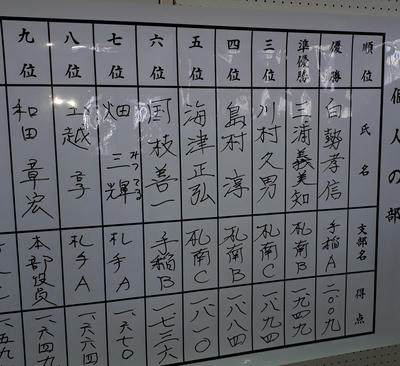 個人の部
順位 氏名 支部名 得点
優勝 白勢孝信 手稲A 二〇〇九
準優勝 三浦義美知 札南B 一九四九
三位 川村久男 札南C 一八九四
四位 島村淳 札南B 一八八四
五位 海津正弘 札南C 一八一〇
六位 国枝善一 手稲B 一七三六
七位 畑三輝 みつてる 札手A 一六七〇
八位 越 札手A 一六六四
九位 和田章宏 本部役員 一六四九
一五九